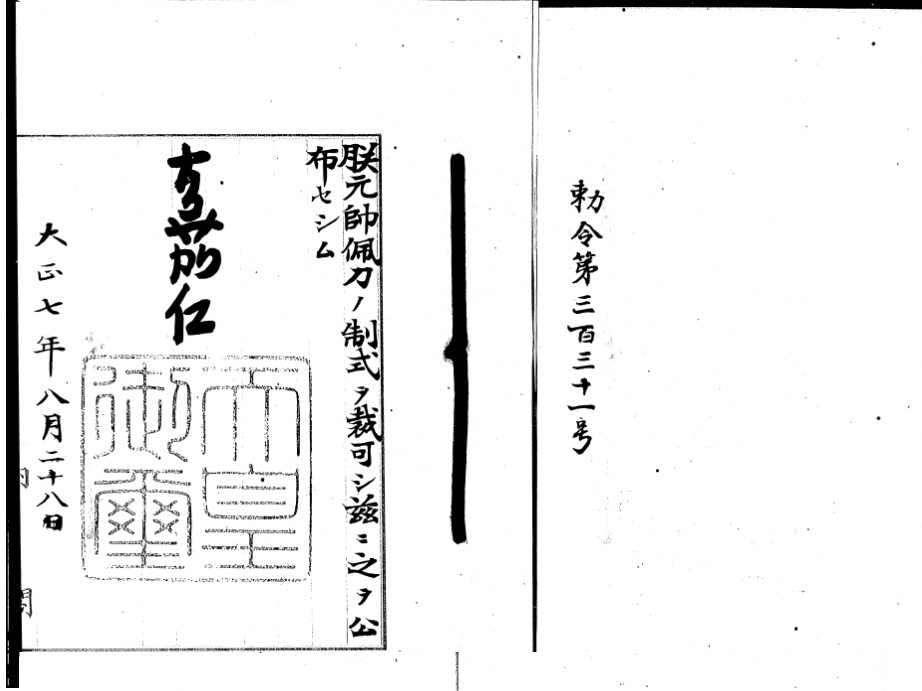 勅令第三百三十一号
朕元帥佩刀ノ制式ヲ裁可シ茲ニ之ヲ公
布セシム
嘉仁
天皇御璽
大正七年八月二十八日
内閣